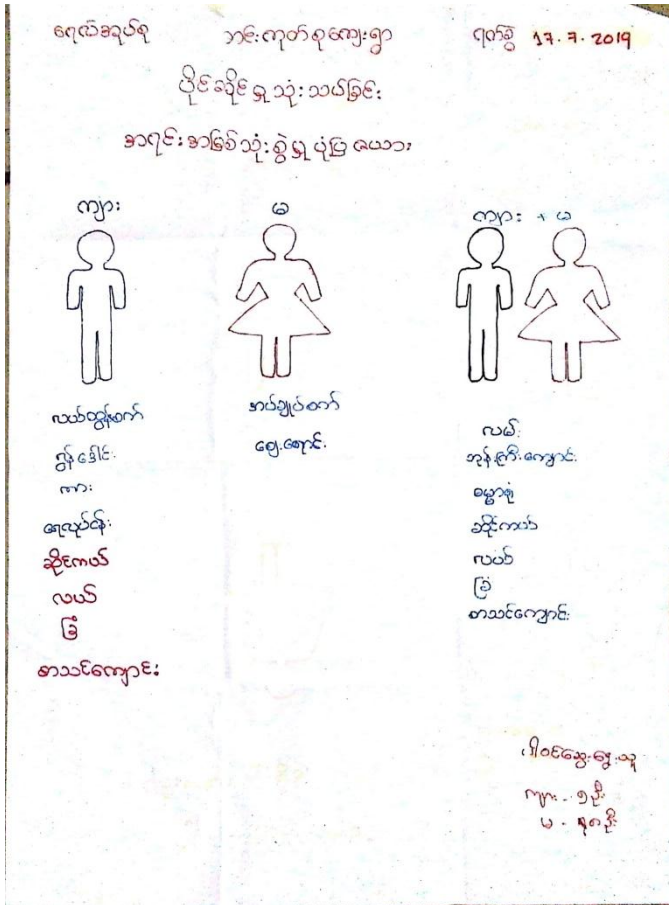 ဘင်းကုတ်စုကျေးရွာ
ရက်စွဲ 17.7.2019
ပိုင်ဆိုင်မှုသုံးသပ်ခြင်း
အရင်းအမြစ်သုံးစွဲမှုပုံပြဇယား
ကျား
မ
ကျား + မ
လယ်ထွန်စက်
ကား
ရေလုပ်ငန်း
ဆိုင်ကယ်
လယ်
ခြံ
စာသင်ကျောင်း
အပ်ချုပ်စက်
ဈေးရောင်း
လမ်း
ဘုန်းကြီးကျောင်း
ဓမ္မာရုံ
ဆိုင်ကယ်
လယ်
ခြံ
စာသင်ကျောင်း
ပါဝင်ဆွေးနွေးသူ
ကျား - ၅ဦး